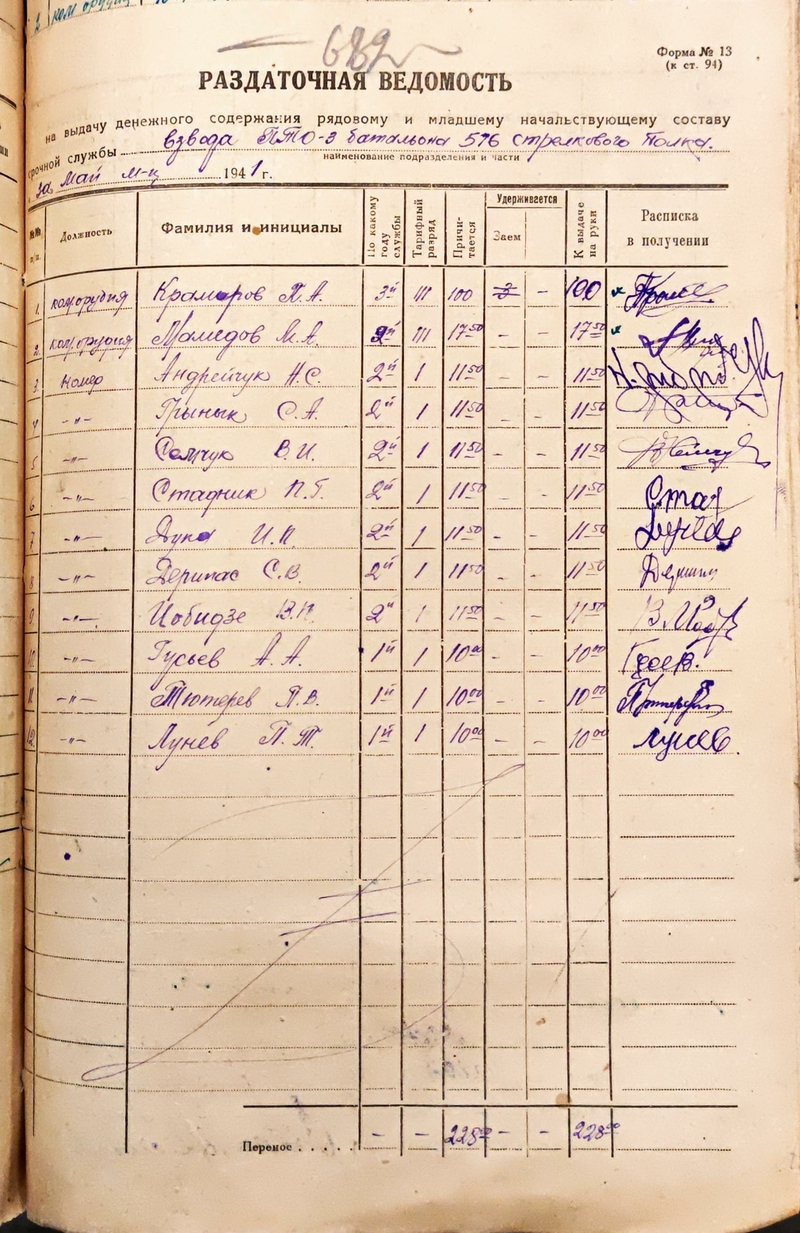 2 ком орудия
682
Форма № 13
(к ст. 94)
РАЗДАТОЧНАЯ ВЕДОМОСТЬ
на выдачу денежного содержания рядовому и младшему начальствующему составу
срочной службы взвода ПТО-3 батальона 576 стрелкового Полка.
наименование подразделения и части
за Май м-ц 1941 г.
№№ п/п. Должность Фамилия и инициалы По какому году службы Тарифный разряд Причитается Удерживается Заем К выдаче на руки Расписка в получении
1. ком.орудия Крамаров П. А. 3й III 100 - 100
2. ком.орудия Мамедов М. А. 2й III 17 50 - - 17 50
3. Номер Андрейчук Н. С. 2й 1 11 50 - - 11 50
4 -"- Грынык С. А. 2й 1 11 50 - - 11 50
5 -"- Семчук В. И. 2й 1 11 50 - - 11 50
6 -"- Стадник П. Г. 2й 1 11 50 - - 11 50 Стад
7 -"- Дуна И. П. 2й 1 11 50 - - 11 50
8 -"- Дерипас С. В. 2й 1 11 50 - - 11 50
9 -"- Иобидзе В. П. 2й 1 11 50 - - 11 50
10 -"- Гусьев А. А. 1й 1 10 00 - - 10 00
11 -"- Тютерев П. В. 1й 1 10 00 - - 10 00
12 -"- Лунев П. Т. 1й 1 10 00 - - 10 00 Лунев
Перенос . . . . . - - 228 00 - - 228 00